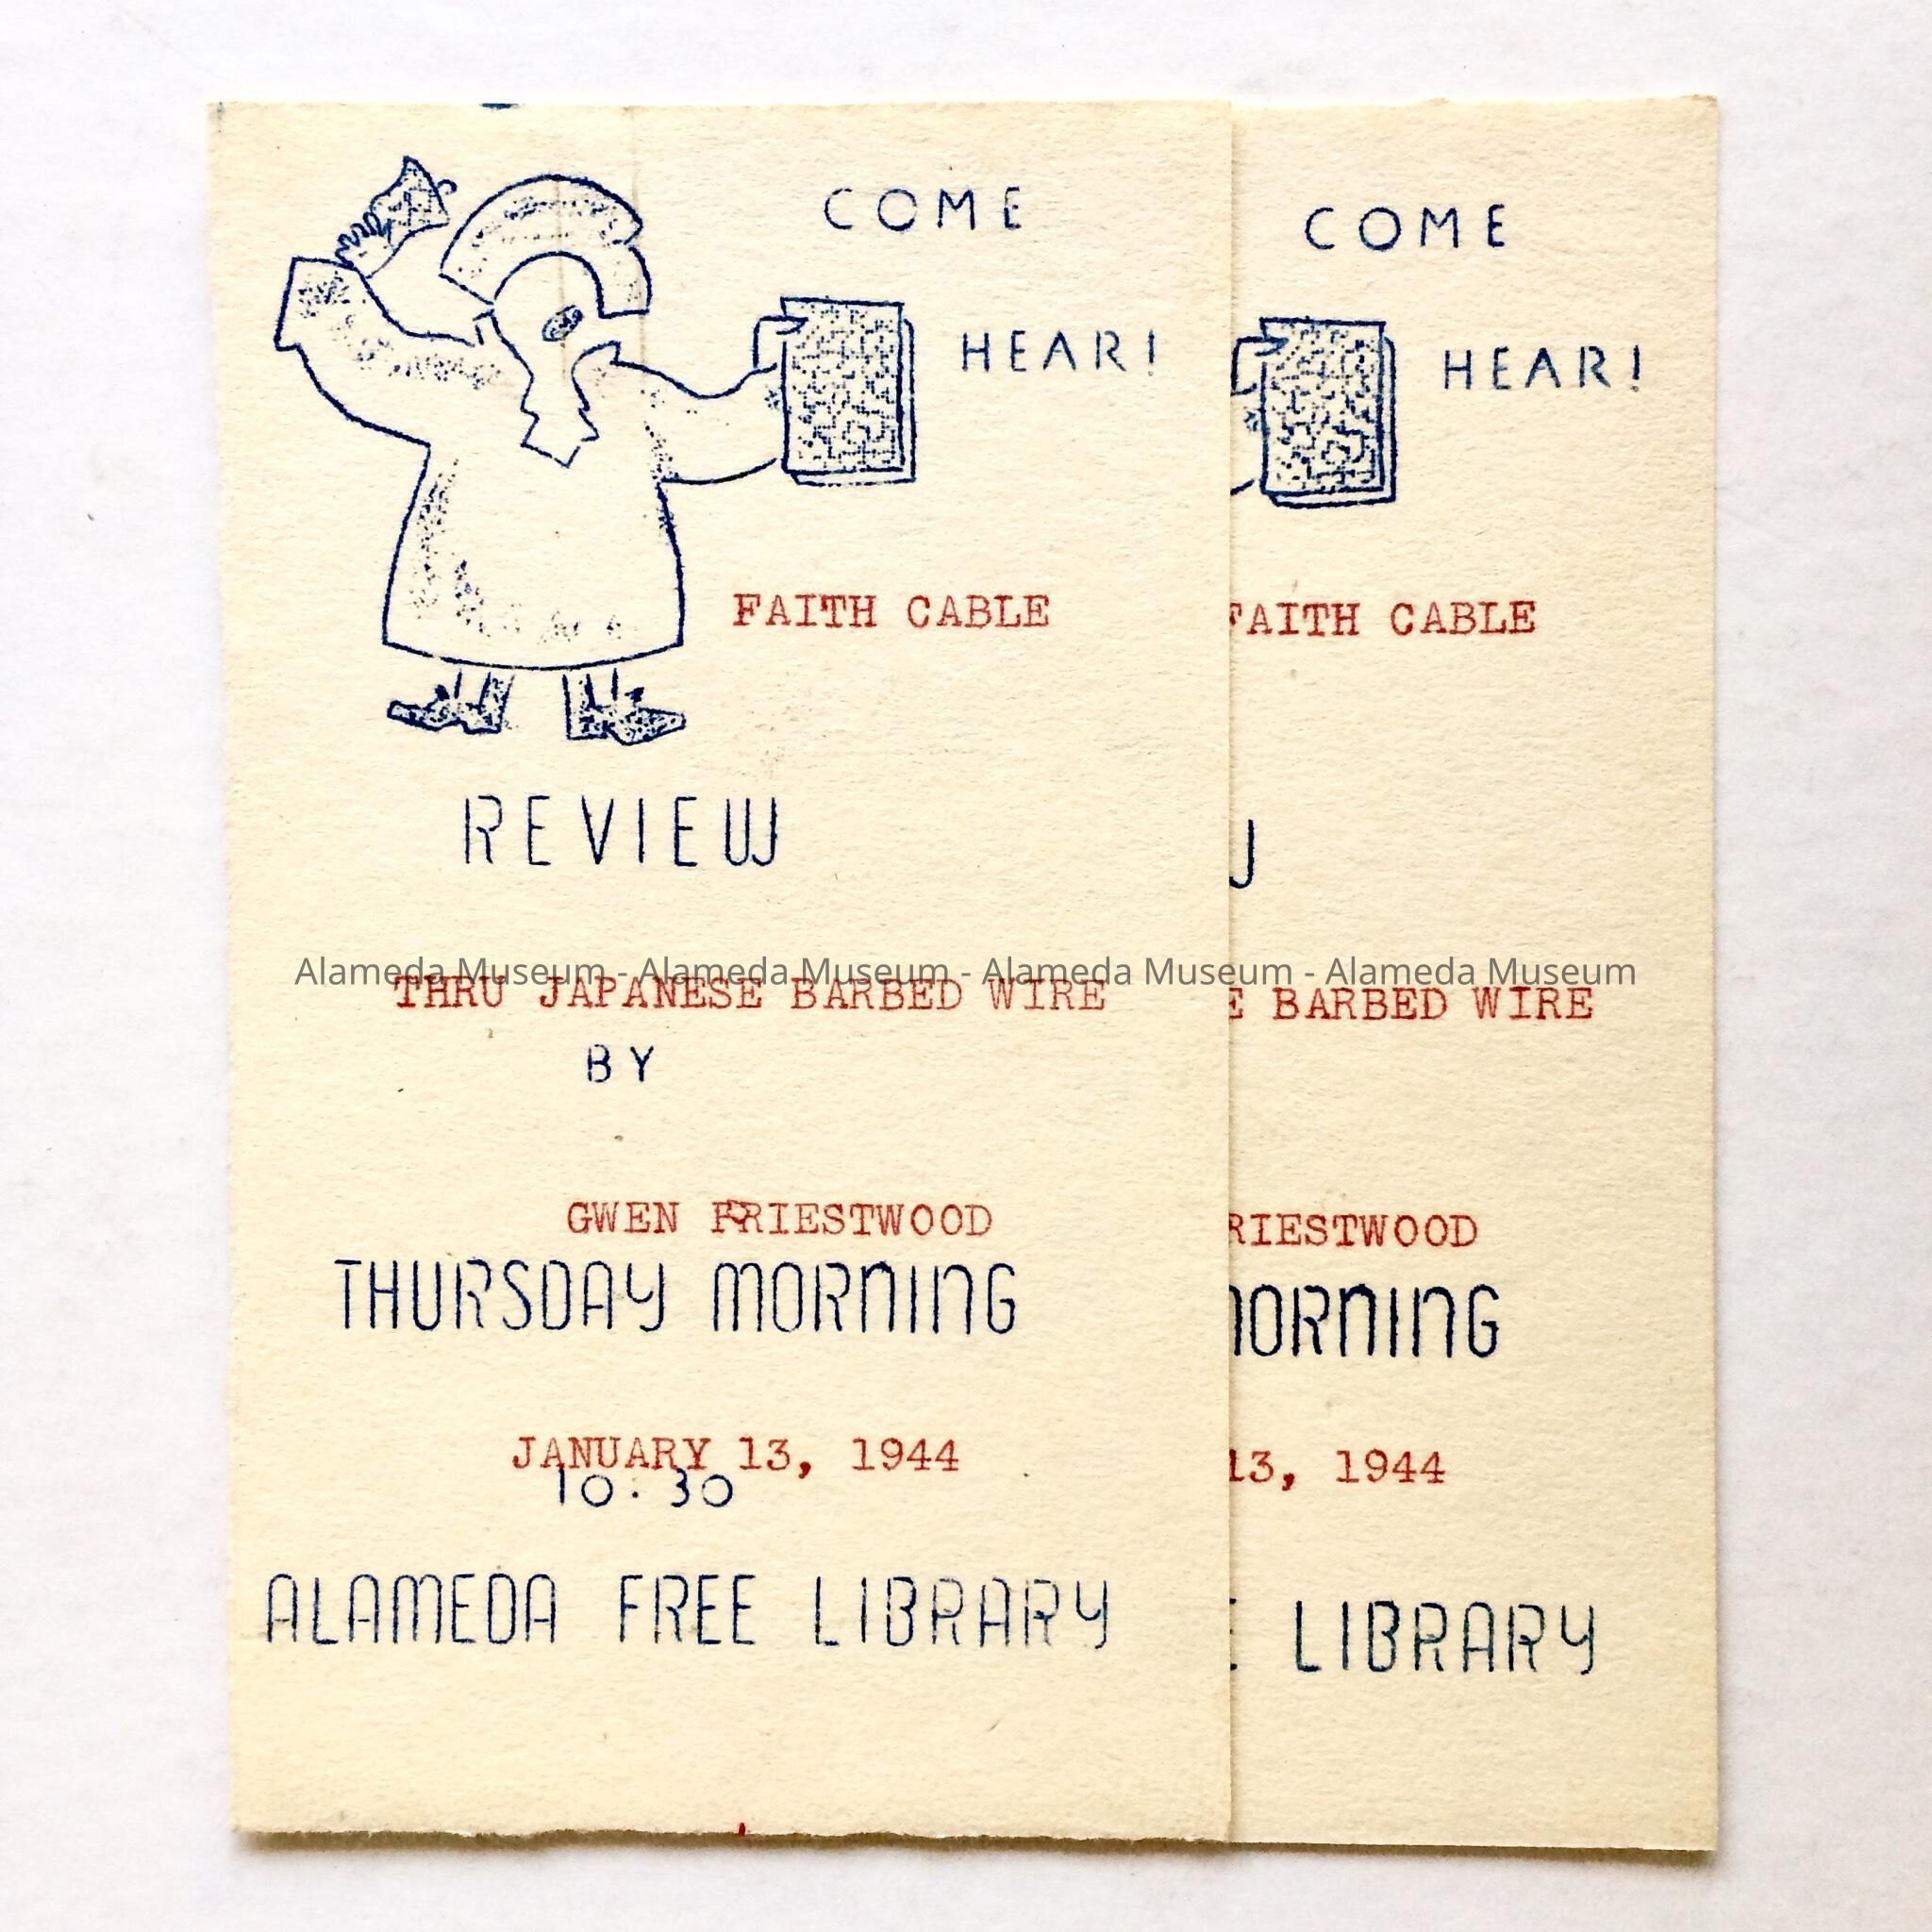 COME
HEAR!
FAITH CABLE
REVIEW
THRU JAPANESE BARBED WIRE
BY
GWEN PRIESTWOOD
THURSDAY MORNING
JANUARY 13, 1944
10:30
ALAMEDA FREE LIBRARY
COME
HEAR!
FAITH CABLE
W
E BARBED WIRE
RIESTWOOD
MORNING
13, 1944
E LIBRARY
Alameda Museum - Alameda Museum - Alameda Museum - Alameda Museum